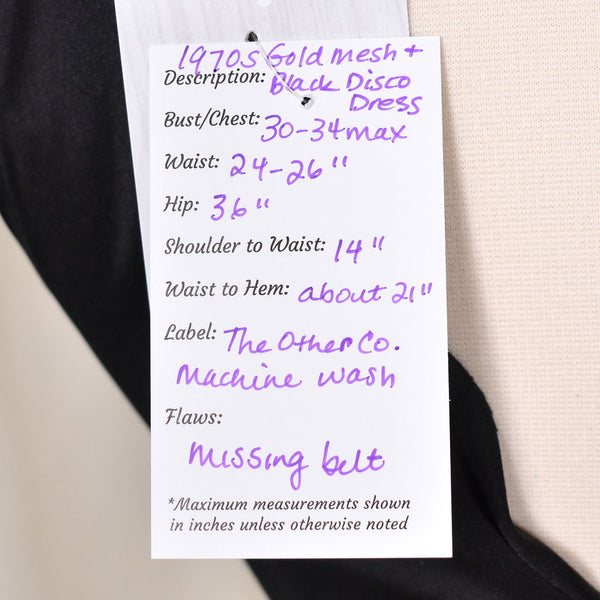 1970s Gold mesh +
Description: Black Disco
Dress
Bust/Chest: 30-34 max
Waist: 24-26"
Hip: 36"
Shoulder to Waist: 14"
Waist to Hem: about 21"
Label: The Other Co.
Machine wash
Flaws:
Missing belt
*Maximum measurements shown
in inches unless otherwise noted